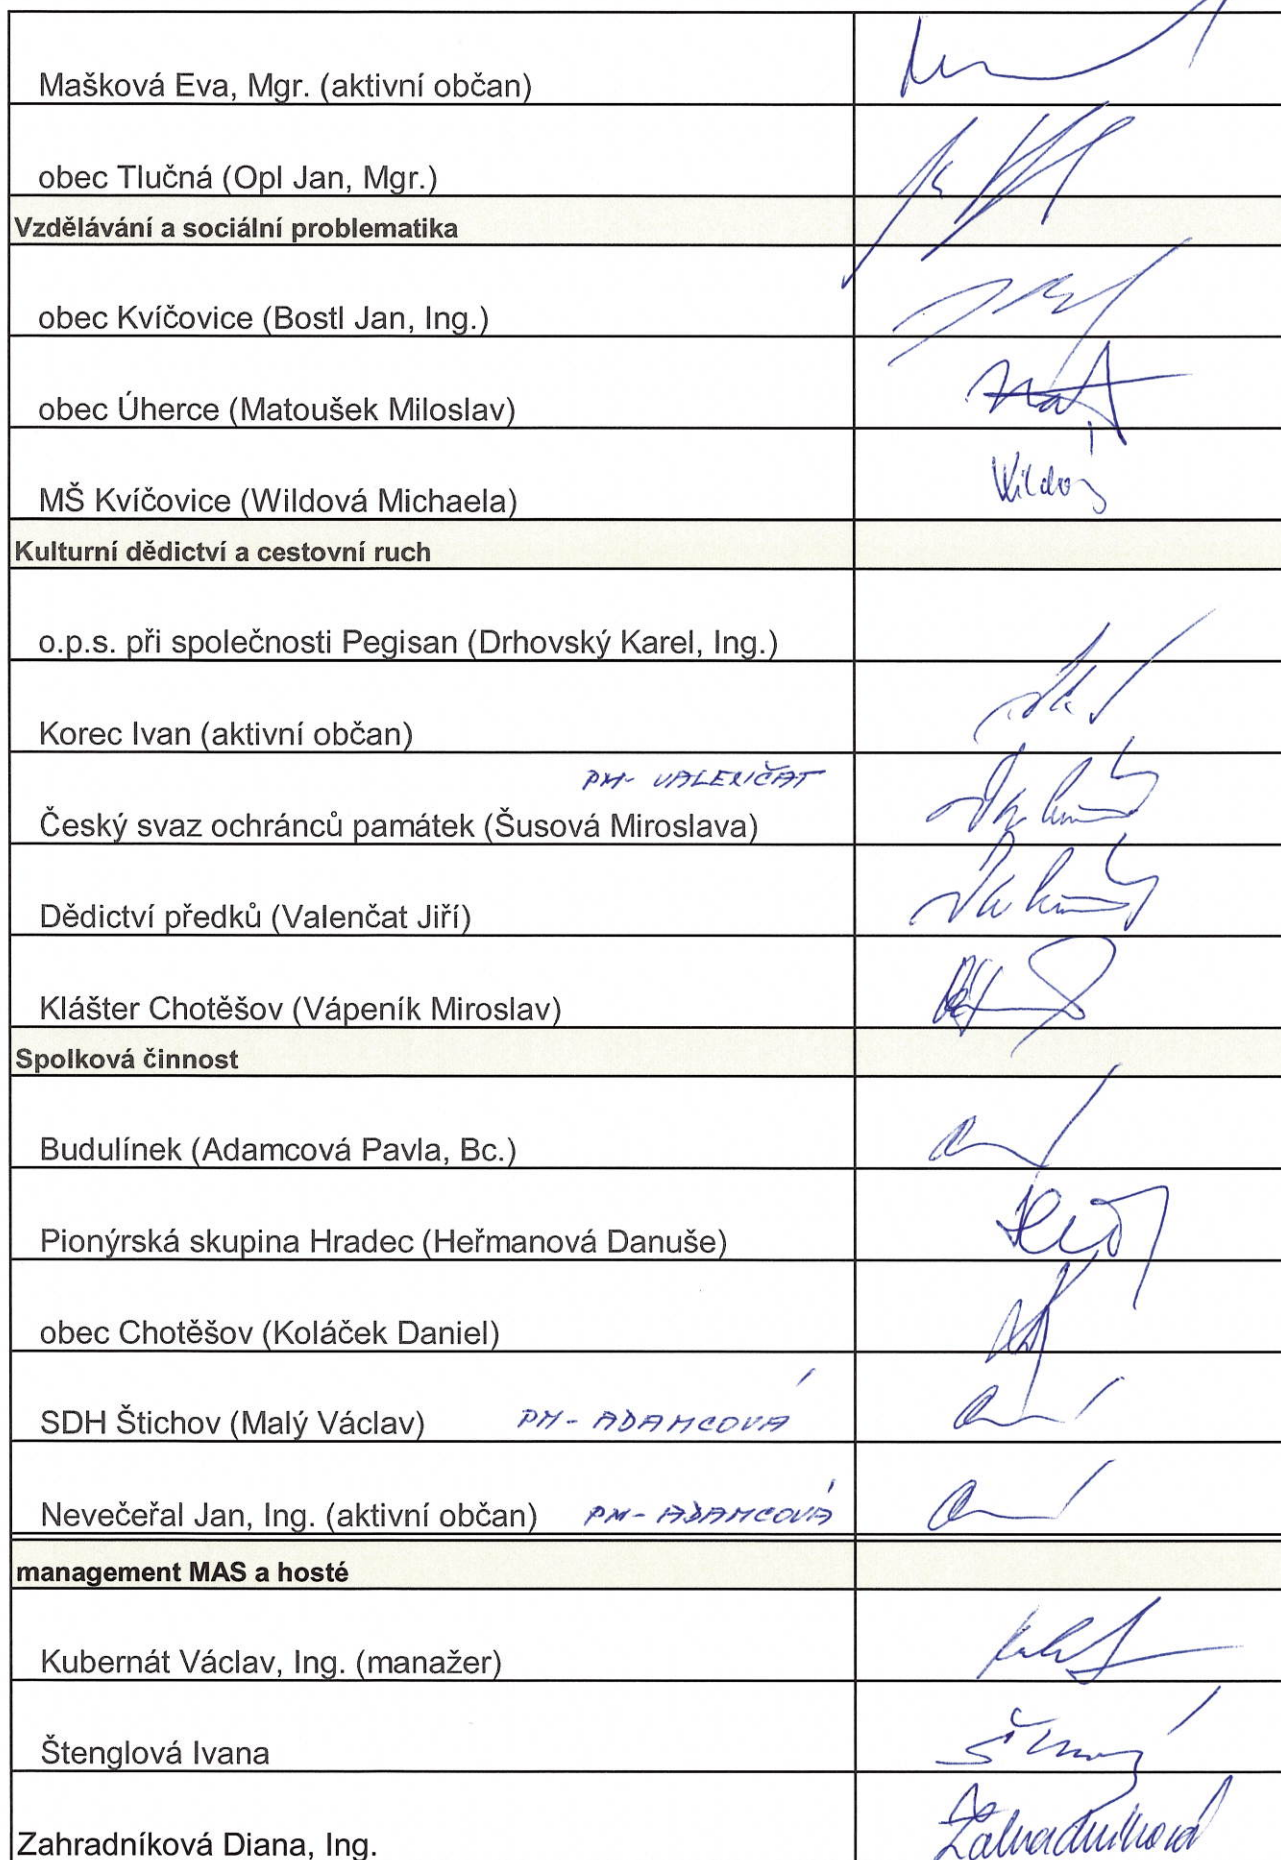 Mašková Eva, Mgr. (aktivní občan)
obec Tlučná (Opl Jan, Mgr.)
Vzdělávání a sociální problematika
obec Kvíčovice (Bostl Jan, Ing.)
obec Úherce (Matoušek Miloslav)
MŠ Kvíčovice (Wildová Michaela)
Kulturní dědictví a cestovní ruch
o.p.s. při společnosti Pegisan (Drhovský Karel, Ing.)
Korec Ivan (aktivní občan)
PM- VALENČAT
Český svaz ochránců památek (Šusová Miroslava)
Dědictví předků (Valenčat Jiří)
Klášter Chotěšov (Vápeník Miroslav)
Spolková činnost
Budulínek (Adamcová Pavla, Bc.)
Pionýrská skupina Hradec (Heřmanová Danuše)
obec Chotěšov (Koláček Daniel)
SDH Štichov (Malý Václav) PM - ADAMCOVÁ
Nevečeřal Jan, Ing. (aktivní občan) PM - ADAMCOVÁ
management MAS a hosté
Kubernát Václav, Ing. (manažer)
Štenglová Ivana
Zahradníková Diana, Ing. Zahradníková